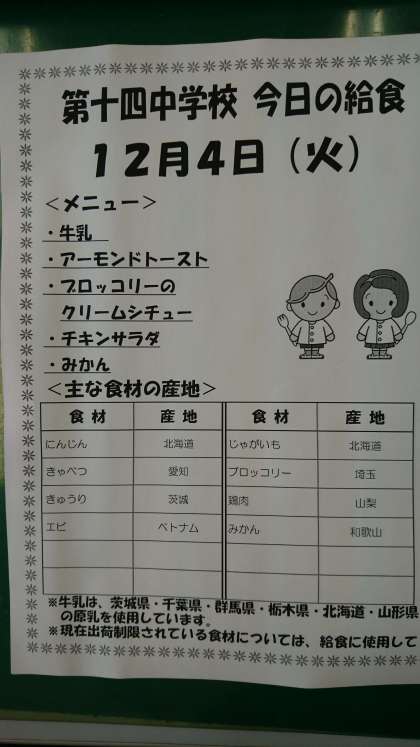 第十四中学校 今日の給食
12月4日（火）
＜メニュー＞
・牛乳
・アーモンドトースト
・ブロッコリーの
クリームシチュー
・チキンサラダ
・みかん
＜主な食材の産地＞
食材 産地 食材 産地
にんじん 北海道 じゃがいも 北海道
きゃべつ 愛知 ブロッコリー 埼玉
きゅうり 茨城 鶏肉 山梨
エビ ベトナム みかん 和歌山
※牛乳は、茨城県・千葉県・群馬県・栃木県・北海道・山形県
の原乳を使用しています。
※現在出荷制限されている食材については、給食に使用して